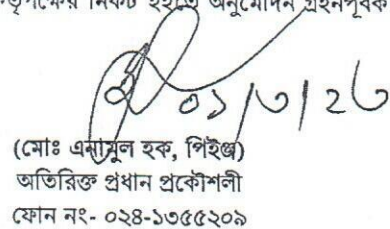 কর্তৃপক্ষের নিকট হইতে অনুমোদন গ্রহনপূর্বক
০১/৩/২৬
(মোঃ এনামুল হক, পিইঞ্জ)
অতিরিক্ত প্রধান প্রকৌশলী
ফোন নং- ০২৪-১৩৫৫২০৯